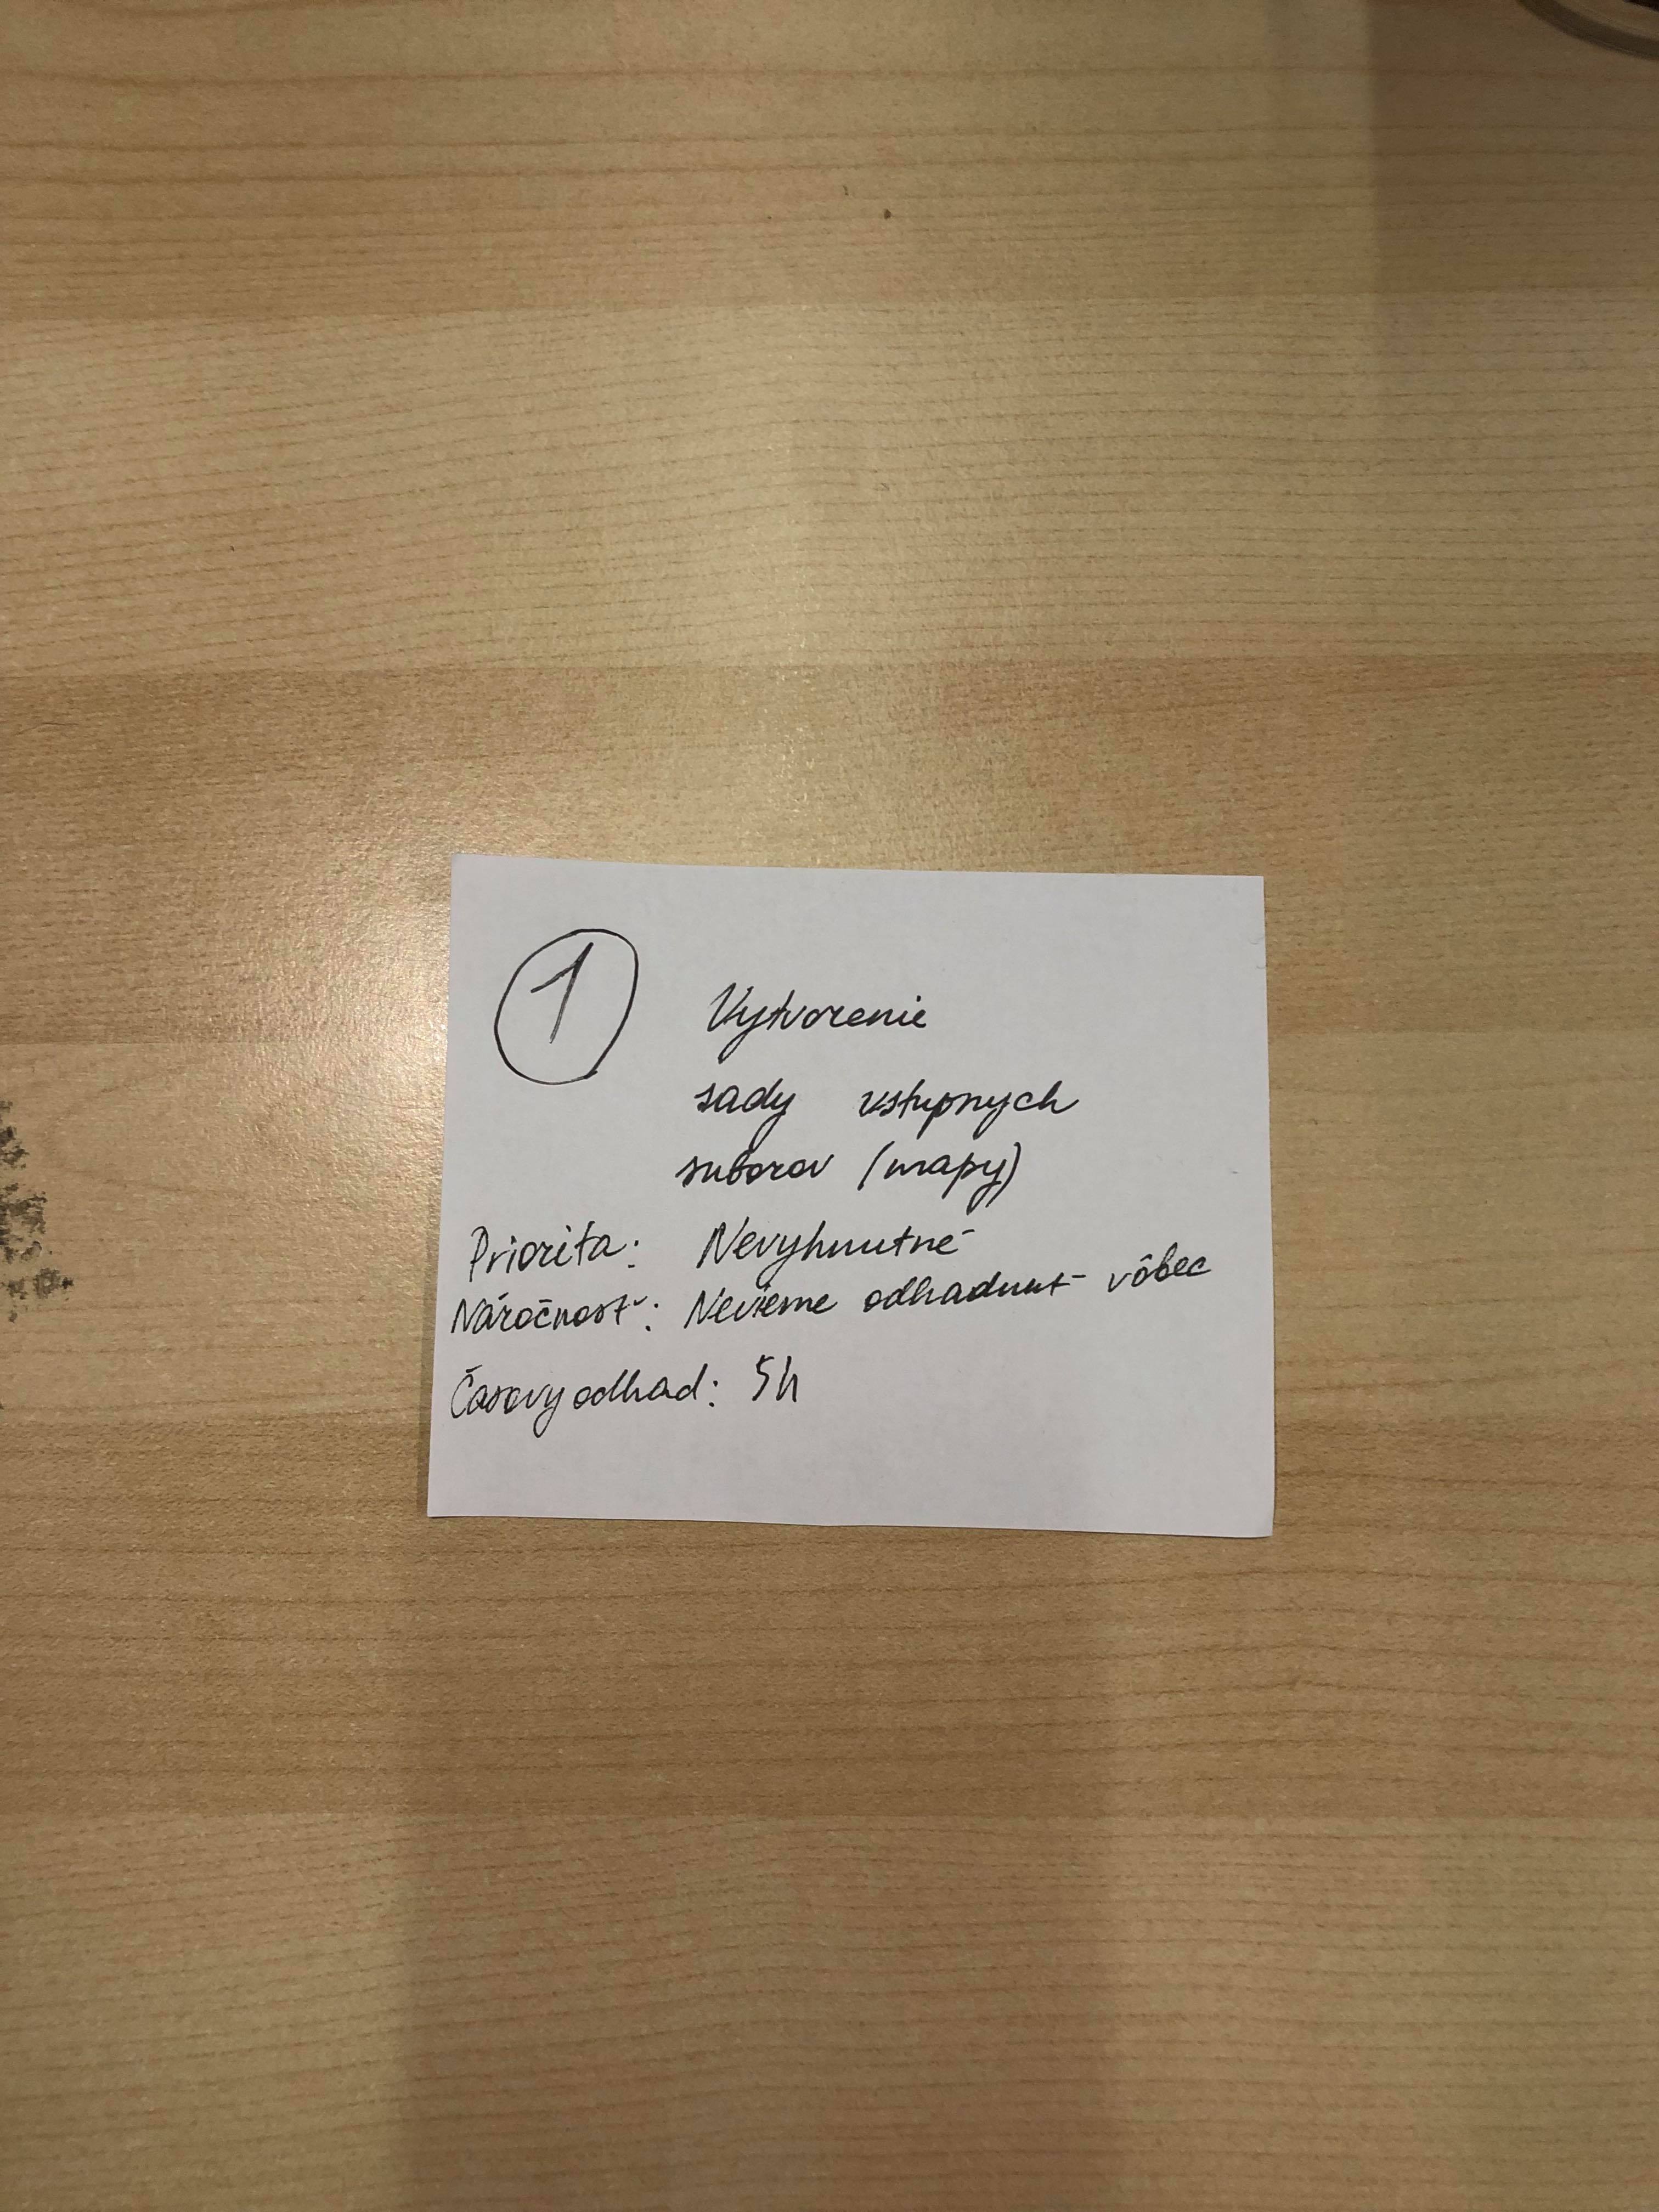 1
Vytvorenie
sady vstupnych
suborov (mapy)
Priorita: Nevyhnutné
Náročnosť: Nevieme odhadnut vôbec
Časovy odhad: 5h